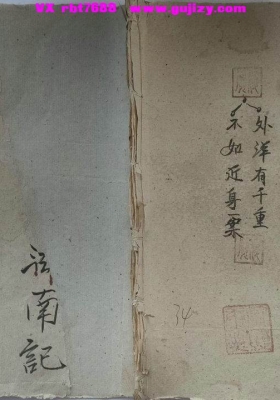 VX rbt7888 www.gujizy.com
外洋有千重
不如近身票
34
南記